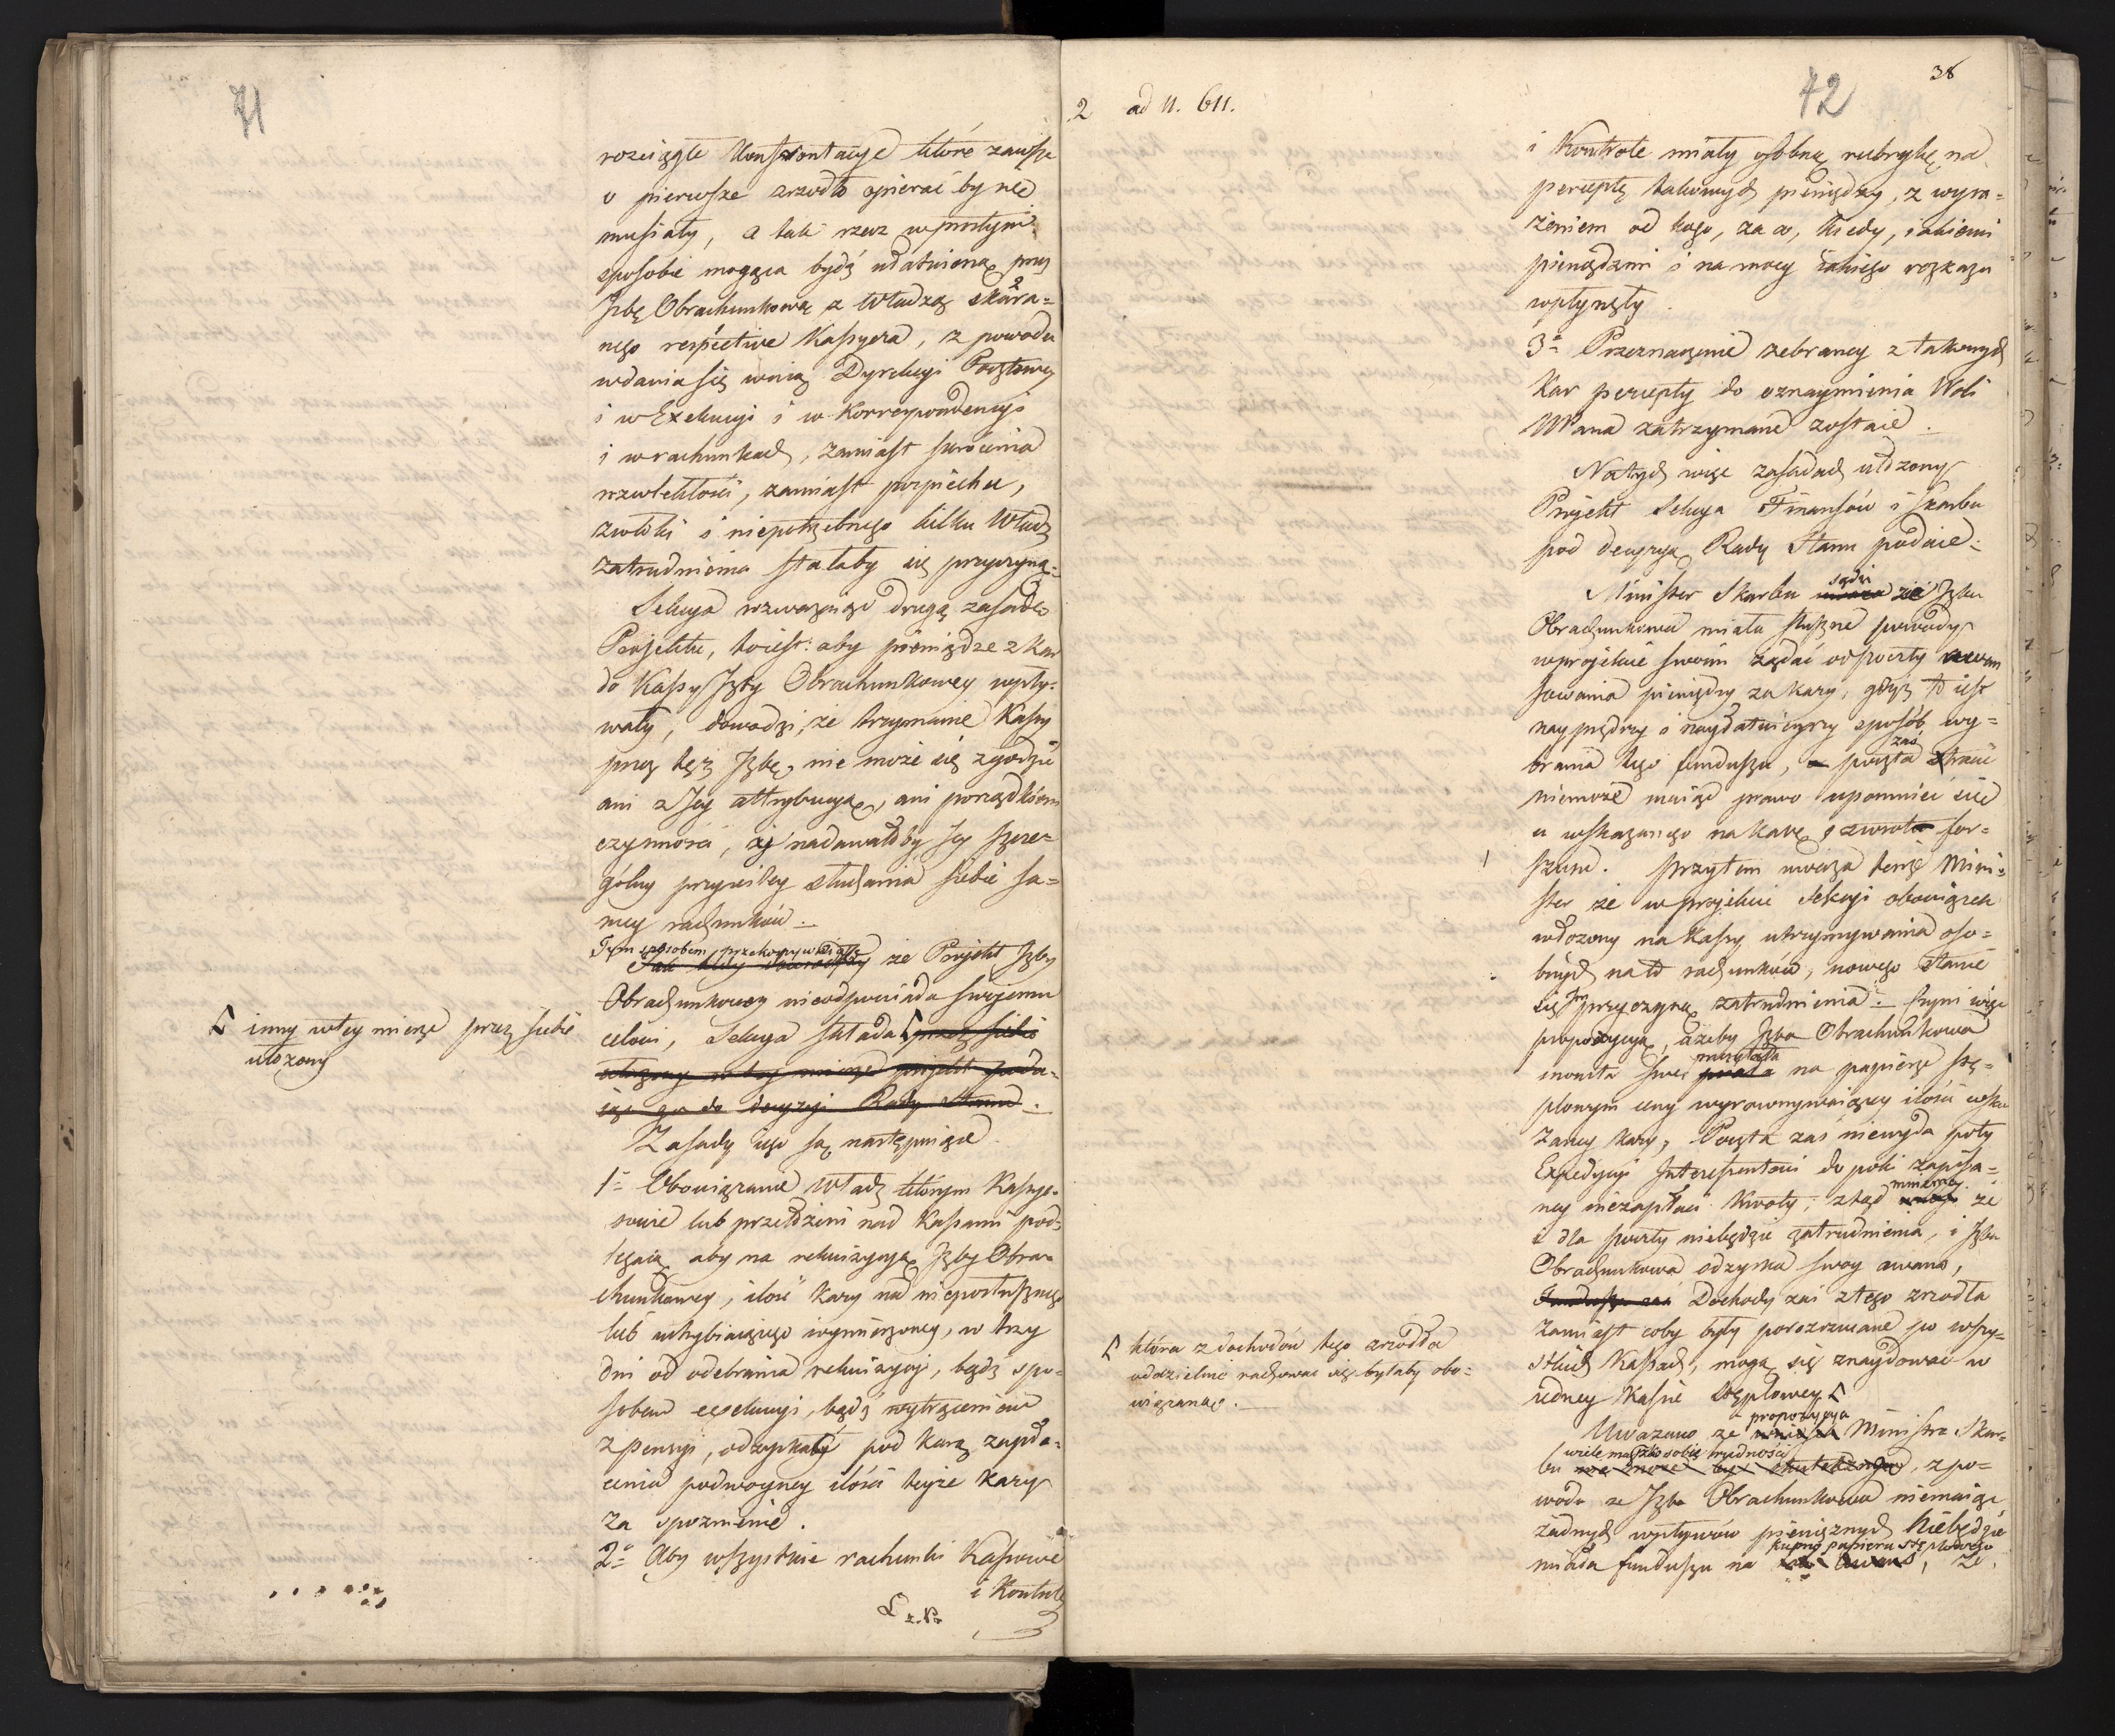 71
rozciągłe Konfrontacye które zawsze
o pierwsze zrzodło opierać by się
musiały, a tak rzecz w prostym
sposobie mogąca bydź ułatwioną przez
Jzbę Obrachunkową z Władzą skara-
nego respective Kassyera, z powodu
wdania się w nią Dyrekcyi Pocztowey
i w Exekucyi i w Korrespondencyi
i w rachunkach, zamiast skrócenia
rozwlekłości, zamiast pospiechu,
zwłoki i niepotrzebnego kilku Władz
zatrudnienia stałaby się przyczyną.
Sekcya rozważaiąc drugą zasadę
Projektu, to iest: aby pieniądze z kar
do Kassy Jzby Obrachunkowey wpły-
wały, dowodzi, że trzymanie Kassy
przez tęż Jzbę, nie może się zgodzić
ani z Jey attrybucyą, ani porządkiem
czynności, y nadawałoby Jey szcze-
gólny przywiley słuchania siebie sa-
mey rachunków.
Tym sposobem przekonywaiąc
że Projekt Jzby
Obrachunkowey nieodpowiada swojemu
celowi, Sekcya składa przez siebie
ułożony w tey mierze projekt podda-
iąc go do decyzyi Rady Stanu.
inny w tey mierze przez siebie
ułożony
Zasady iego są następuiące
1o Obowiązanie Władz którym Kassye-
rowie lub przełożeni nad Kassami pod-
legaią, aby na rekwizycyą Jzby Obra-
chunkowey, ilość kary nad nieposłusznego
lub uchybiaiącego wymierzoney, w trzy
dni od odebrania rekwizycyi, bądź spo-
sobem exekucyi, bądź wytrąceniem
z pensyi, odzyskały pod karą zapła-
cenia podwoyney ilości teyże kary
za spoznienie.
2o Aby wszystkie rachunki Kassowe
i Kontrole
2 ad N. 611.
42
38
i Kontrole miały osobną rubrykę na
perceptę takowych pieniędzy, z wyra-
żeniem od kogo, za co, kiedy, iakiemi
pieniądzmi i na mocy iakiego rozkazu
wpłynęły.
3o Przeznaczenie zebraney z takowych
kar percepty do oznaymienia Woli
NPana zatrzymane zostaie.
Na tych więc zasadach ułożony
Projekt Sekcya Finansów i Skarbu
pod decyzyą Rady Stanu podaie.
sądzi
Minister Skarbu uważa że Jzba
Obrachunkowa miała słuszne powody
w projekcie swoim żądać od poczty awan
sowania pieniędzy za kary, gdyż to iest
nayprędszy i nayłatwieyszy sposób wy-
zaś
brania tego funduszu, a poczta stracić
niemoże maiąc prawo upomnieć się
u wskazanego na karę o zwrot for-
szusu. Przytem uważa tenże Mini-
ster że w projekcie Sekcyi obowiązek
włożony na Kassy utrzymywania oso-
bnych na to rachunków, nowego stanie
się im przyczyną zatrudnienia. Czyni więc
propozycyą, ażeby Jzba Obrachunkowa
na papierze stę-
plowym ceny wyrownywaiącey ilości wska
zaney kary, Poczta zaś niewyda póty
Expedycyi Jnteressentowi dopóki zapisa-
mniema.
ney niezapłaci kwoty; ztąd że
i dla poczty niebędzie zatrudnienia, i Jzba
Obrachunkowa odzyska swoy awans,
Fundusz zaś Dochody zaś z tego zrzodła
zamiast coby były porozrzucane po wszy-
stkich Kassach, mogą się znaydować w
iedney Kassie Stęplowey
która z dochodów tego zrzodła
oddzielnie rachować się byłaby obo-
wiązaną.
propozycya
Uważano że Ministra Skar-
wiele ma przeciw sobie trudności
bu nie może być skuteczną, z po-
wodu że Jzba Obrachunkowa niemaiąc
żadnych wpływów pieniężnych niebędzie
kupno papieru stęplowego
miała funduszu na awans, że